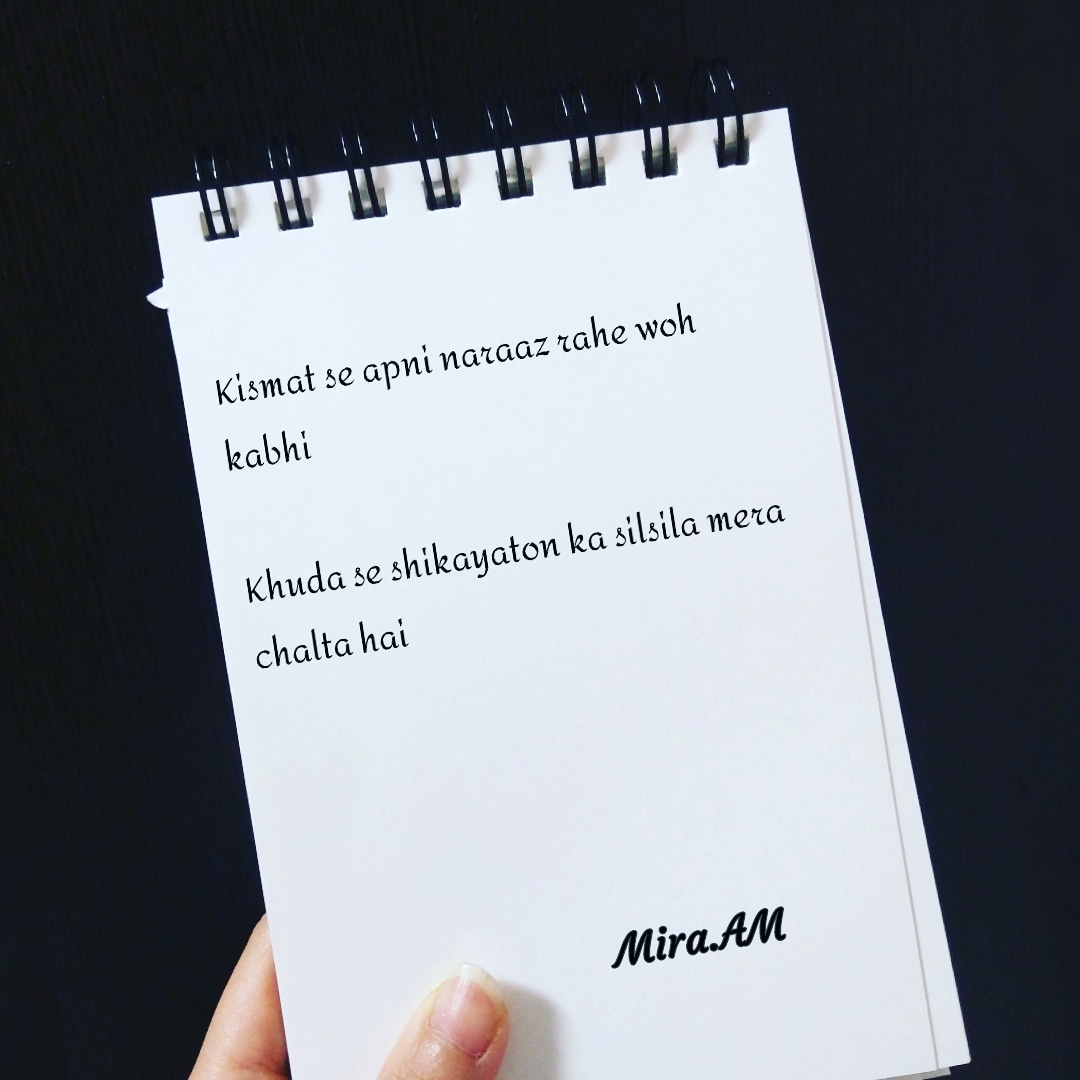 Kismat se apni naraaz rahe woh
kabhi
Khuda se shikayaton ka silsila mera
chalta hai
Mira.AM